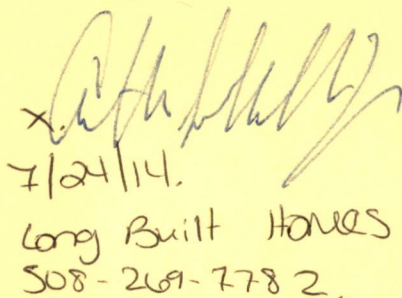 x.
7/24/14.
Long Built Homes
508-269-7782.